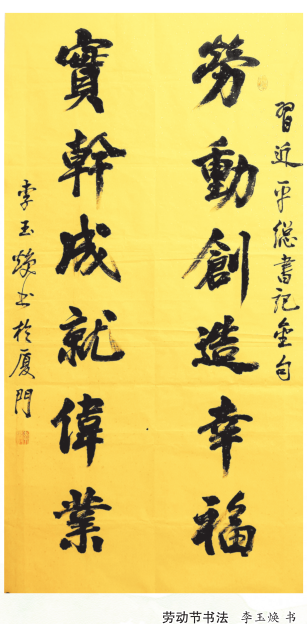 習近平總書記金句
勞動創造幸福
實幹成就偉業
李玉煥书於厦門
劳动节书法 李玉焕 书